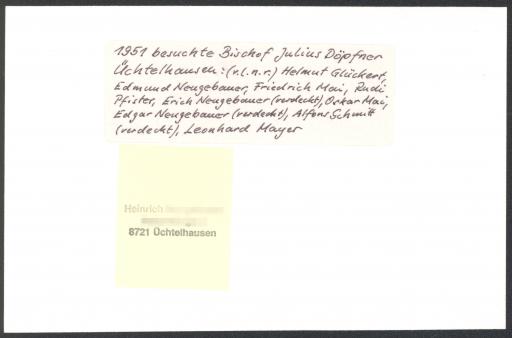 1951 besuchte Bischof Julius Döpfner
Üchtelhausen: (v.l.n.r.) Helmut Glückert,
Edmund Neugebauer, Friedrich Mai, Rudi
Pfister, Erich Neugebauer (verdeckt), Oskar Mai,
Edgar Neugebauer (verdeckt), Alfons Schmitt
(verdeckt), Leonhard Mayer
Heinrich
8721 Üchtelhausen